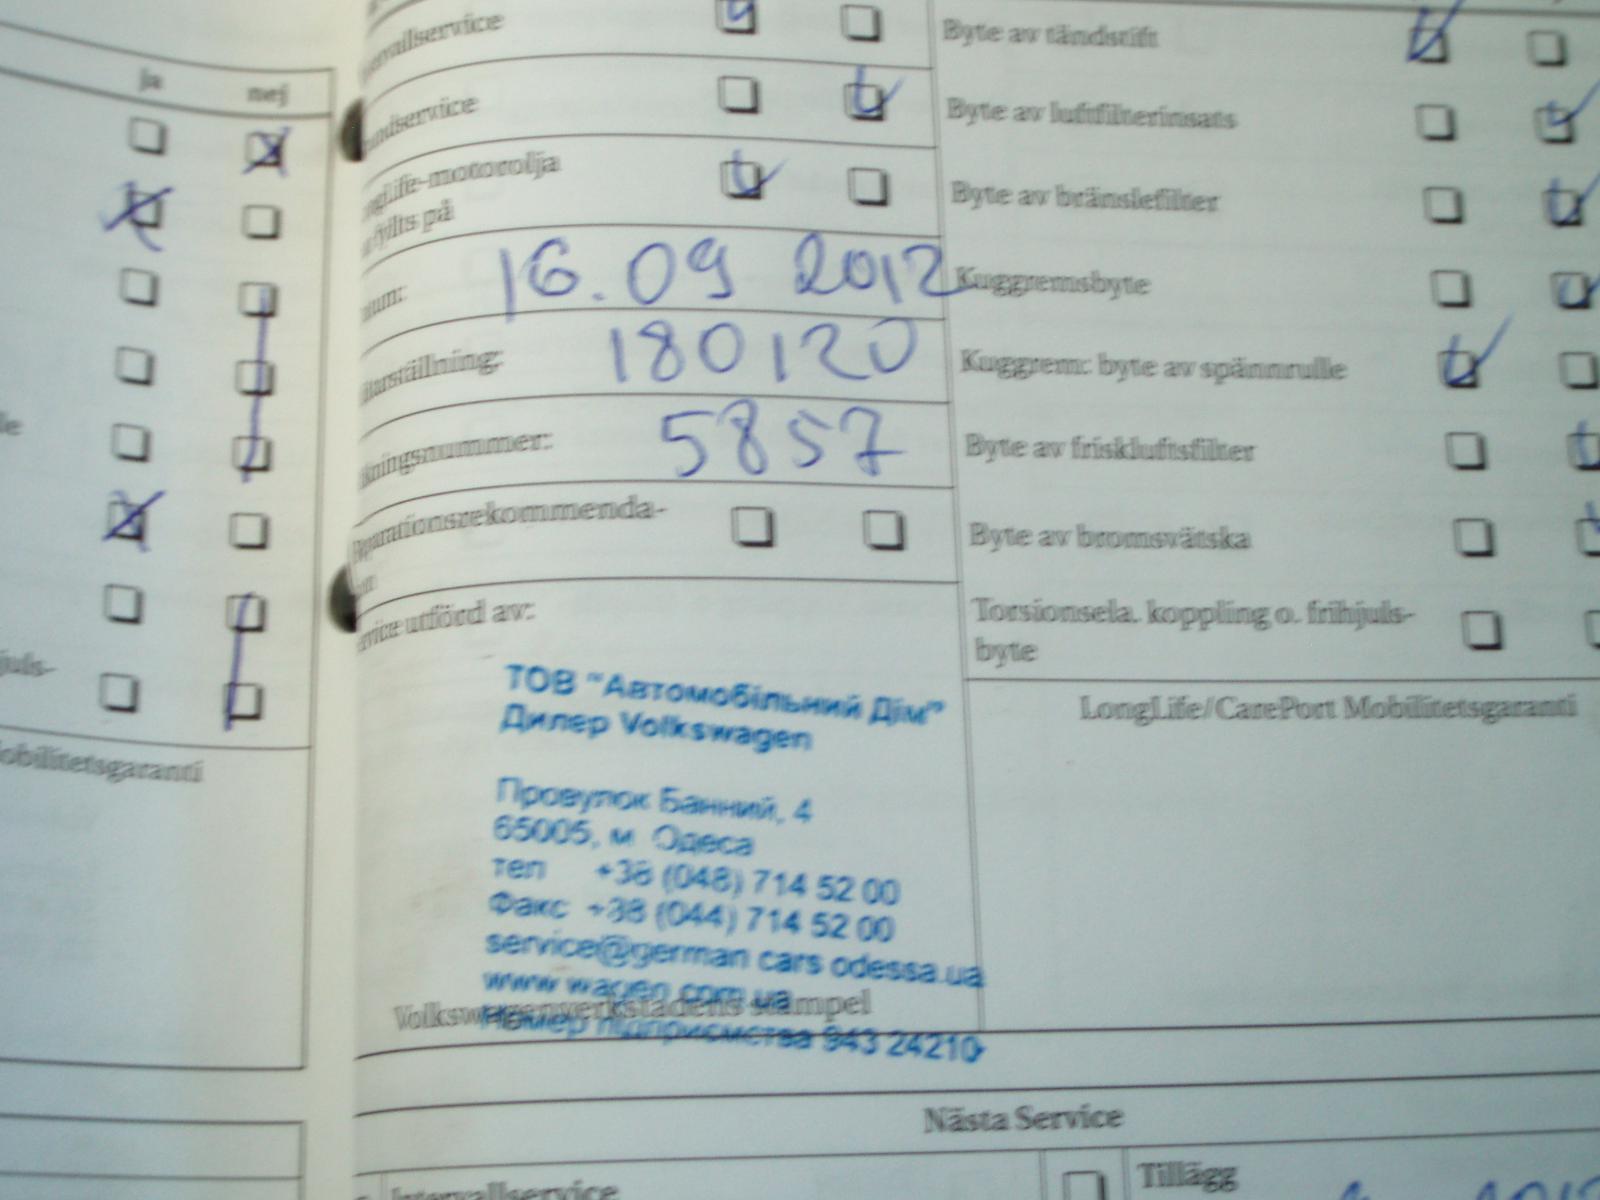 ja nej
le
juls-
obilitetsgaranti
vallservice
ndservice
ngLife-motorolja
fyllts på
um: 16.09 2012
tarställning: 180120
kningsnummer: 5857
parationsrekommenda-
rvice utförd av:
ТОВ "Автомобільний Дім"
Дилер Volkswagen
Провулок Банний, 4
65005, м Одеса
тел +38 (048) 714 52 00
Факс +38 (044) 714 52 00
service@german cars odessa.ua
www wagen com ua
Номер підприємства 943 24210
Volkswagenverkstadens stämpel
Byte av tändstift
Byte av luftfilterinsats
Byte av bränslefilter
Kuggremsbyte
Kuggrem: byte av spännrulle
Byte av friskluftsfilter
Byte av bromsvätska
Torsionsela. koppling o. frihjuls-
byte
LongLife/CarePort Mobilitetsgaranti
Nästa Service
Intervallservice
Tillägg